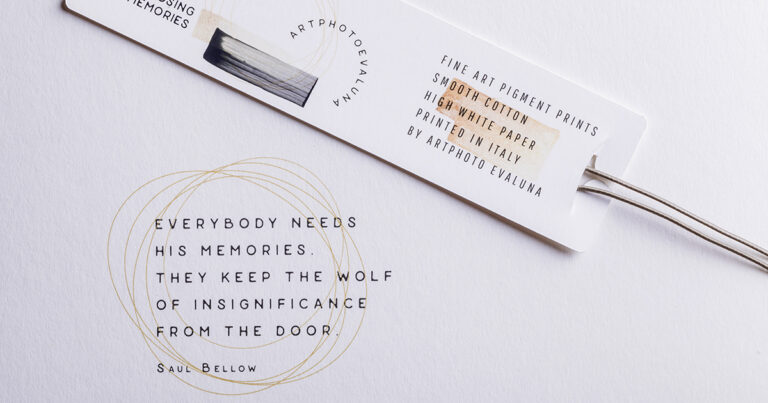 OSING
MEMORIES
ARTPHOTOEVALUNA
FINE ART PIGMENT PRINTS
SMOOTH COTTON
HIGH WHITE PAPER
PRINTED IN ITALY
BY ARTPHOTO EVALUNA
EVERYBODY NEEDS
HIS MEMORIES.
THEY KEEP THE WOLF
OF INSIGNIFICANCE
FROM THE DOOR.
SAUL BELLOW